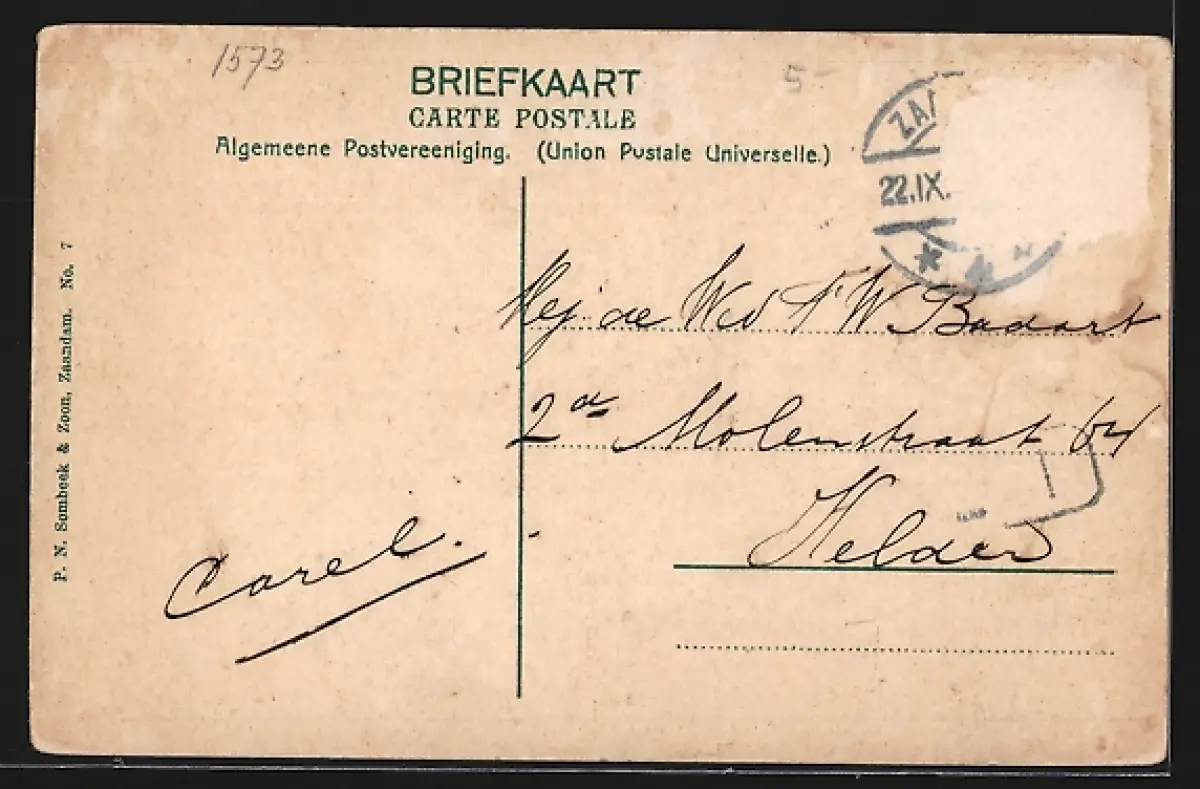 1573
5-
BRIEFKAART
CARTE POSTALE
Algemeene Postvereeniging. (Union Postale Universelle.)
ZA
22.IX.
Mej. de Wed W. Badart
2de Molenstraat
Helder
Carel.
P. N. Sombeek & Zoon, Zaandam. No. 7